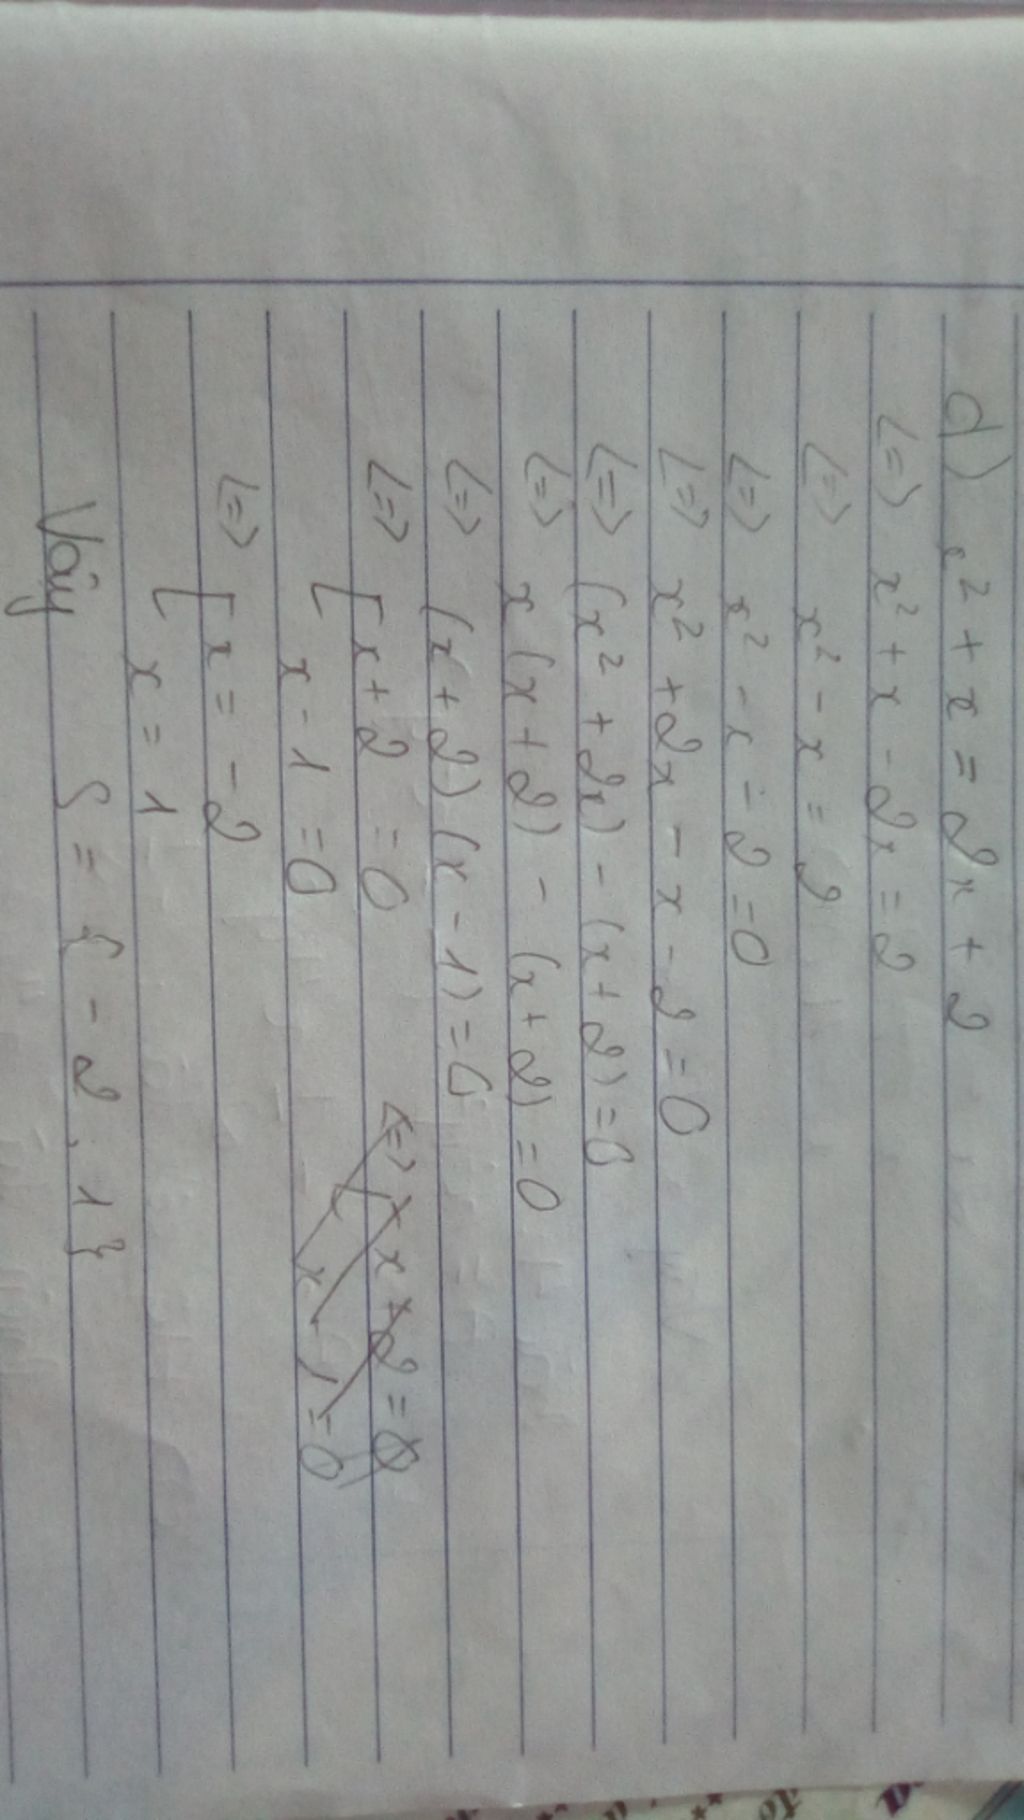 d) x² + x = 2x + 2
<=> x² + x - 2x = 2
<=> x² - x = 2
<=> x² - x - 2 = 0
<=> x² + 2x - x - 2 = 0
<=> (x² + 2x) - (x + 2) = 0
<=> x (x + 2) - (x + 2) = 0
<=> (x + 2) (x - 1) = 0
<=> [ x + 2 = 0 <=> [ x x + 2 = 0
x - 1 = 0 x - 1 = 0
<=> [ x = - 2
x = 1
Vậy S = { - 2 , 1 }